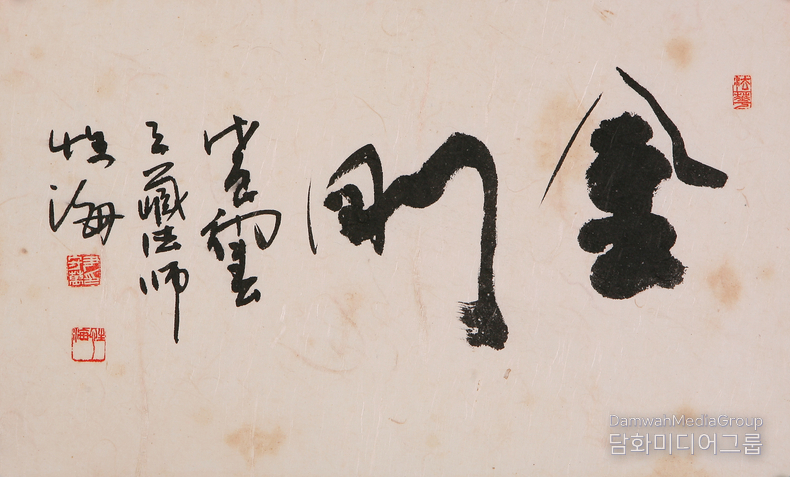 金剛
三藏法师
性海
性海
DamwanMediaGroup
담화미디어그룹